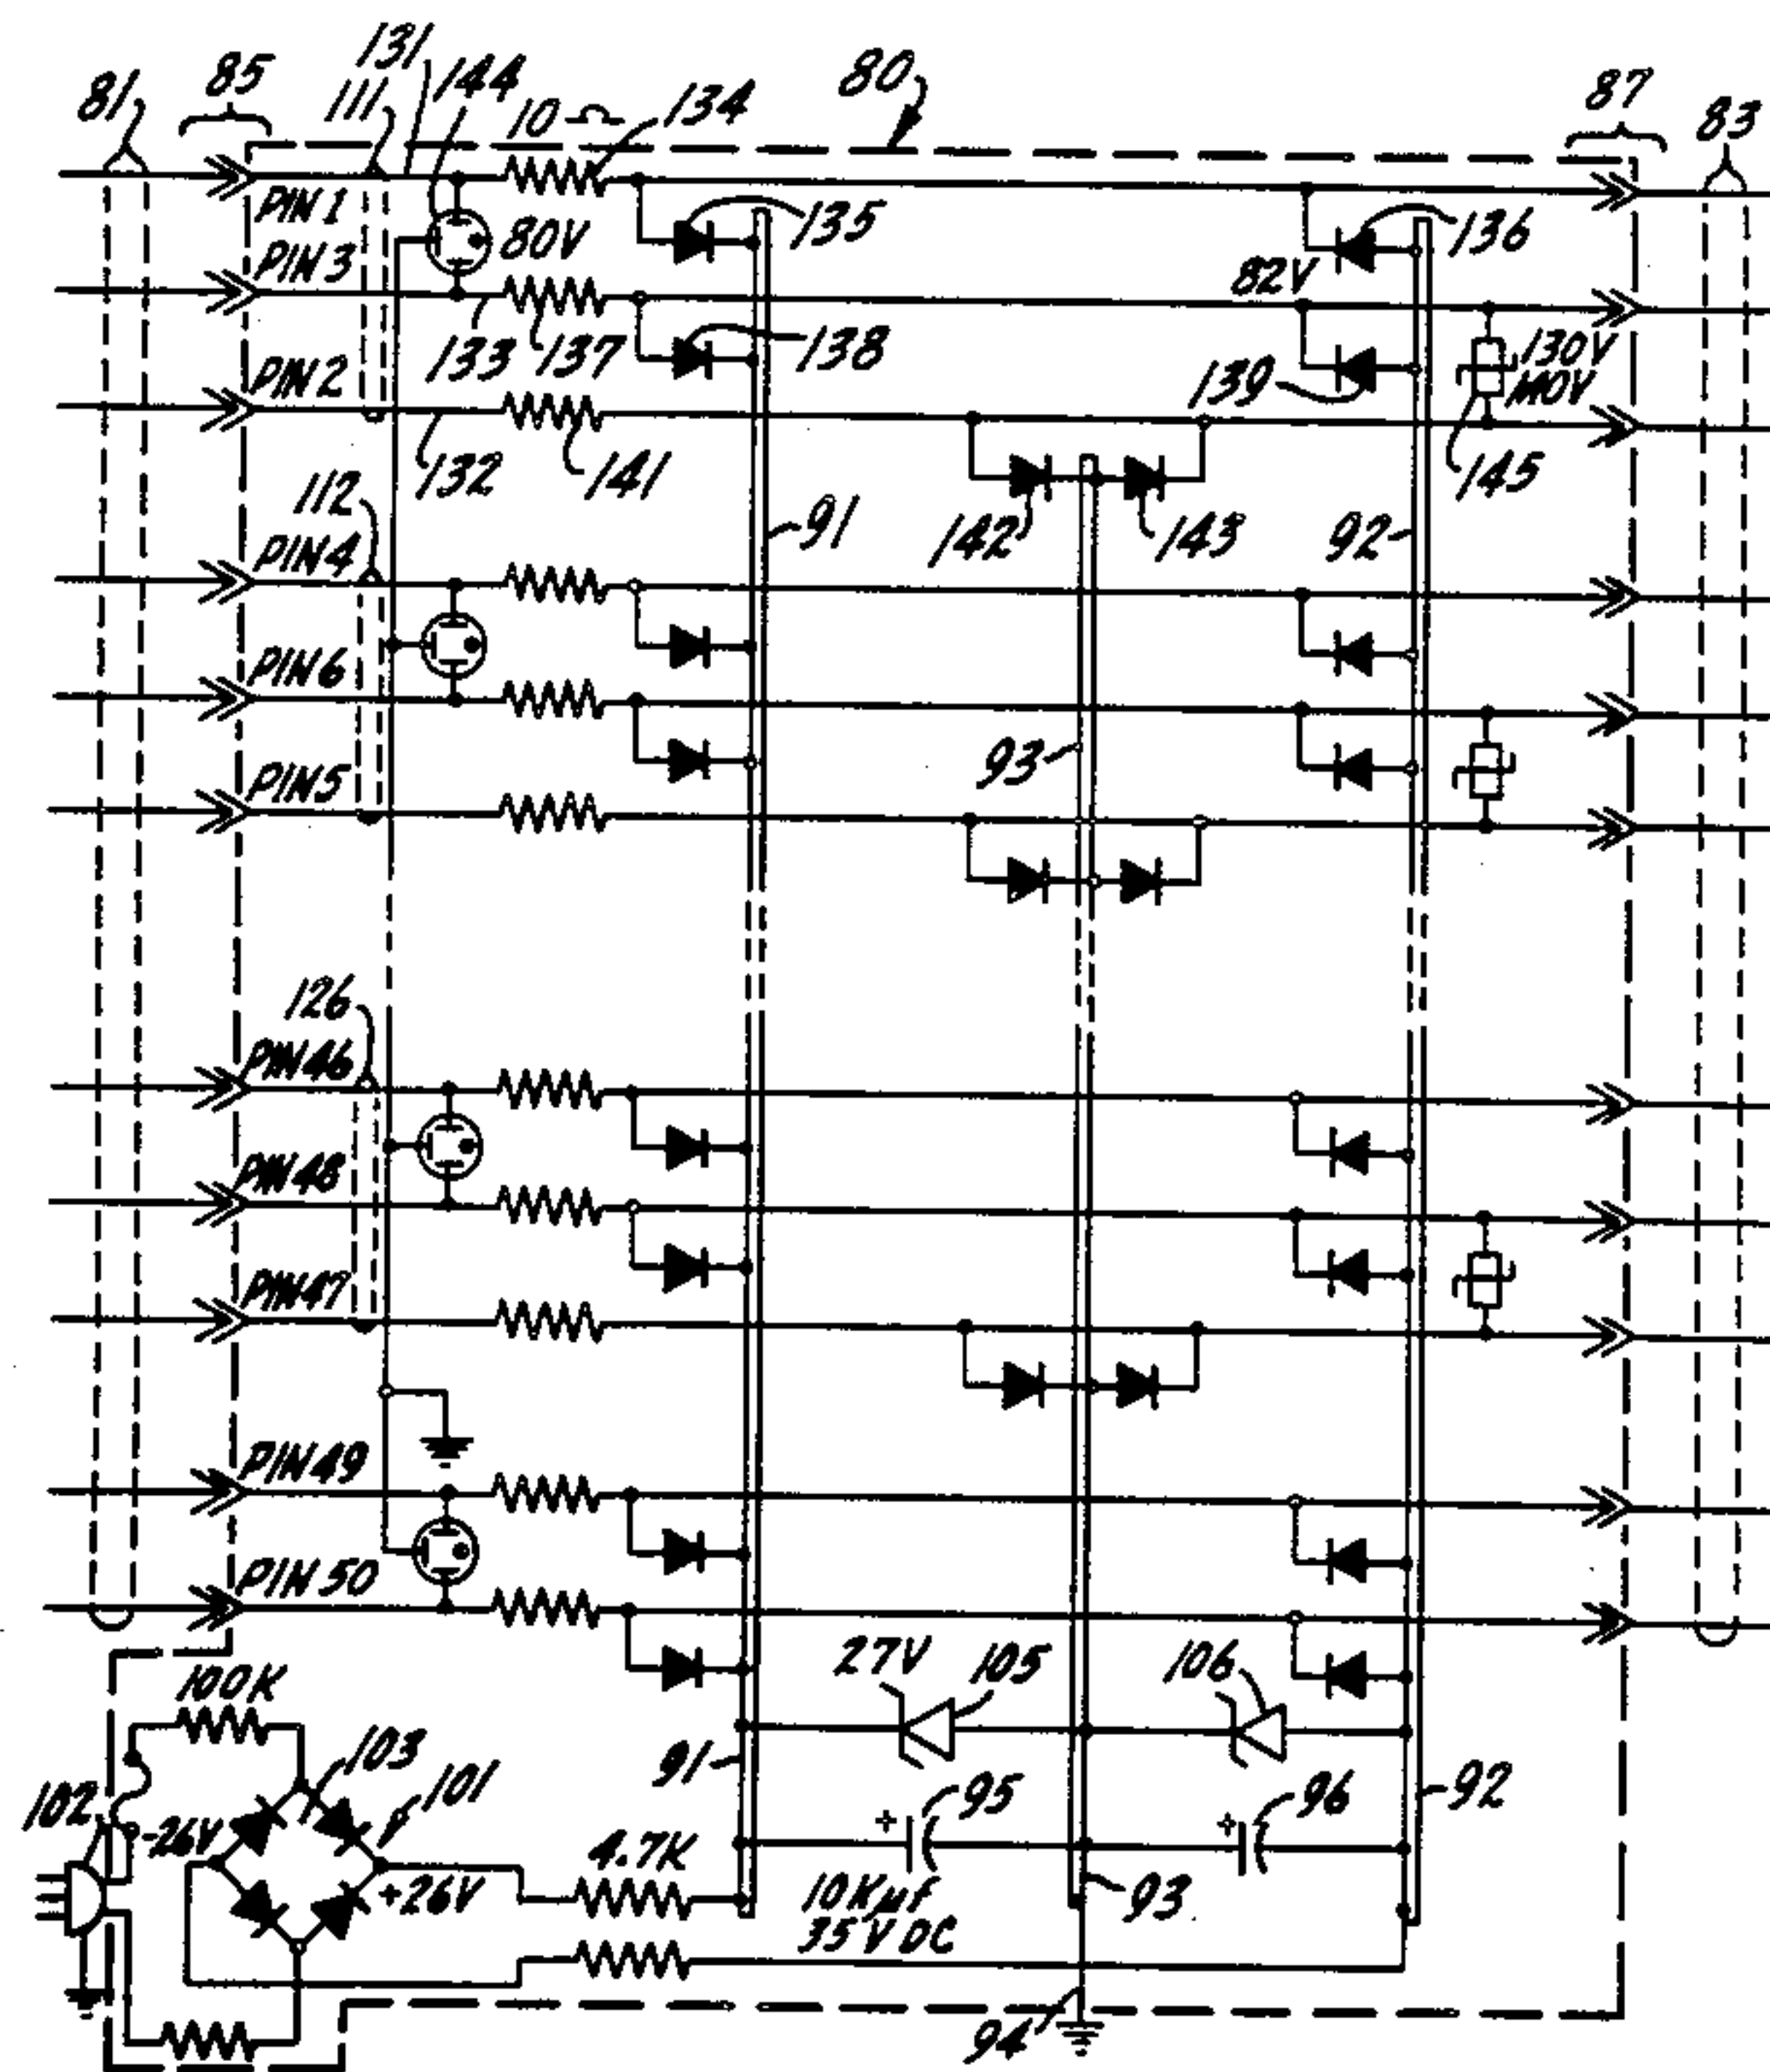 81
85
131
111
144
10 Ω
134
80
87
83
PIN 1
80V
135
136
PIN 3
82V
133
137
138
139
130V
MOV
PIN 2
132
141
142
143
145
112
91
92
PIN 4
PIN 6
93
PIN 5
126
PIN 46
PIN 48
PIN 47
PIN 49
PIN 50
100K
27V
105
106
103
101
91
92
102
-26V
+
95
+
96
4.7K
+26V
10Kµf
35VDC
93
94